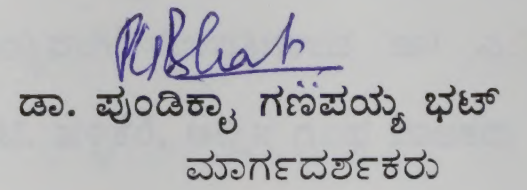 PGBhat
ಡಾ. ಪುಂಡಿಕ್ಯಾ ಗಣಪಯ್ಯ ಭಟ್
ಮಾರ್ಗದರ್ಶಕರು